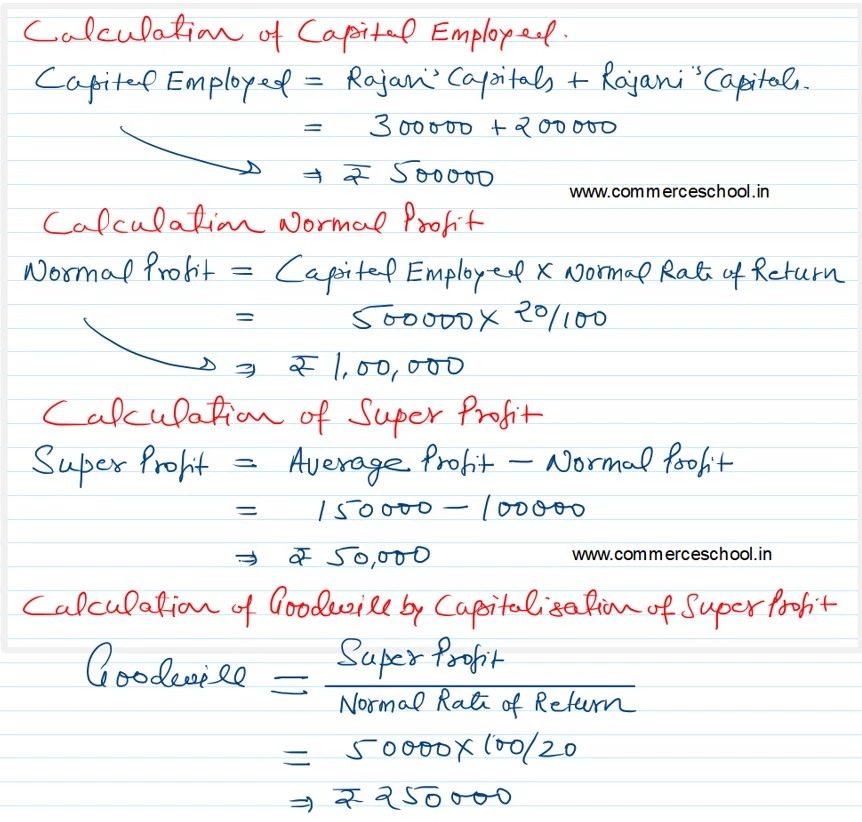 Calculation of Capital Employed.
Capital Employed = Rajan's Capitals + Rajani's Capitals.
= 300000 + 200000
⇒ ₹ 500000
www.commerceschool.in
Calculation Normal Profit
Normal Profit = Capital Employed x Normal Rate of Return
= 500000 x 20/100
⇒ ₹ 1,00,000
Calculation of Super Profit
Super Profit = Average Profit - Normal Profit
= 150000 - 100000
⇒ ₹ 50,000
www.commerceschool.in
Calculation of Goodwill by Capitalisation of Super Profit
Goodwill = Super Profit
Normal Rate of Return
= 50000 x 100/20
⇒ ₹ 250000